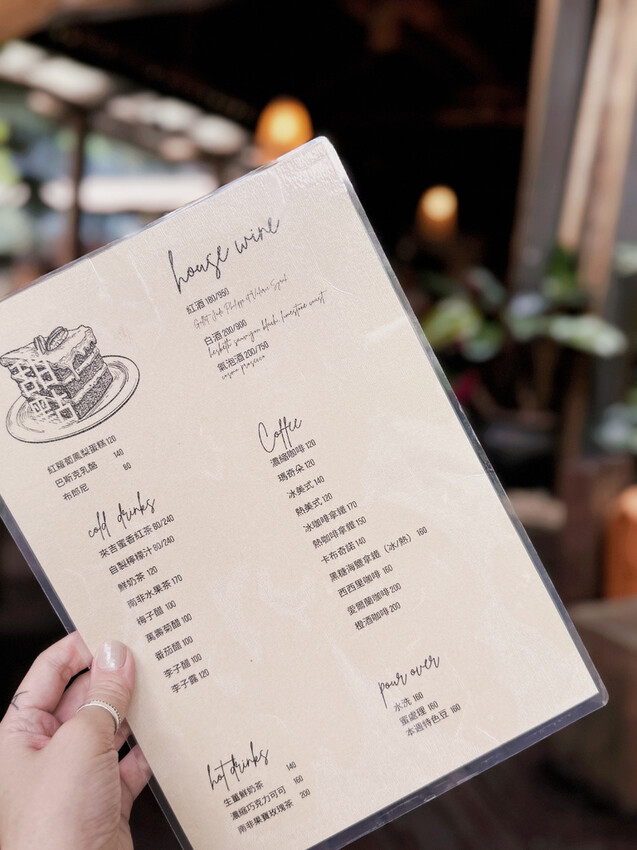 house wine
紅酒 180/950
白酒 200/900
氣泡酒 200/750
casona prosecco
紅蘿蔔鳳梨蛋糕 120
巴斯克乳酪 140
布郎尼 80
cold drinks
來吉蜜香紅茶 80/240
自製檸檬汁 80/240
鮮奶茶 120
南非水果茶 170
梅子醋 100
萬壽菊醋 100
番茄醋 100
李子醋 100
李子露 120
hot drinks
生薑鮮奶茶 140
濃縮巧克力可可 160
南非果寶玫瑰茶 200
Coffee
濃縮咖啡 120
瑪奇朵 120
冰美式 140
熱美式 120
冰咖啡拿鐵 170
熱咖啡拿鐵 150
卡布奇諾 140
黑糖海鹽拿鐵（冰/熱） 180
西西里咖啡 160
愛爾蘭咖啡 200
橙酒咖啡 200
pour over
水洗 160
蜜處理 160
本週特色豆 180